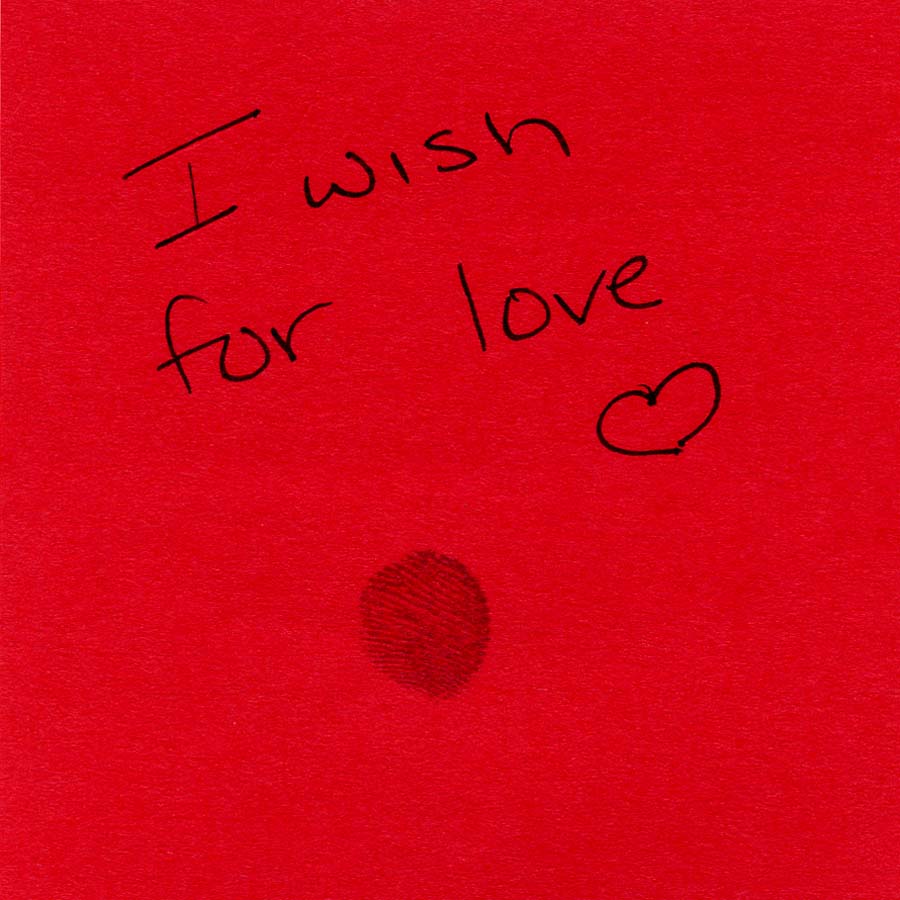 I wish
for love